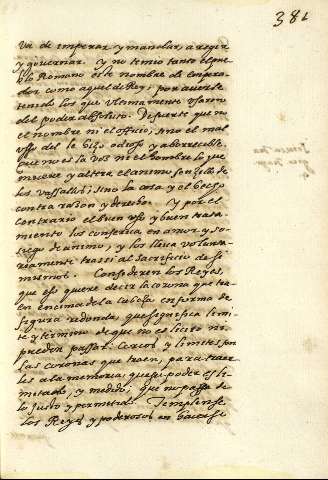 381
va de imperar y mandar, a regir
y governar. y no temio tanto el pue-
blo Romano este nombre de empera-
dor como aquel de Rey, por averse
tenido los que ultimamente usaron
del poder absoluto. De suerte que no
el nombre ni el officio, sino el mal
usso del le hizo odioso y aborrecible.
que no es la voz ni el nombre lo que
mueve y altera el animo sencillo de
los vassallos; sino la cosa y el hecho
contra raçon y derecho. Y por el
contrario el buen uso y buen trata-
miento los conserva en amor y so-
siego de animo, y los lleva volunta-
riamente trassi al sacrificio de si
mismos. Consideren los Reyes,
que esso quiere decir la corona que tra-
en encima de la cabeça en forma de
figura redonda, que significa limi-
te y termino de que no es licito ni
pueden passar. Cercos y limites son
las coronas que traen, para traer-
les a la memoria que su poder es li-
mitado, y medido; que no passe de
lo justo y permitido. Templense
los Reyes y poderosos en hacerse